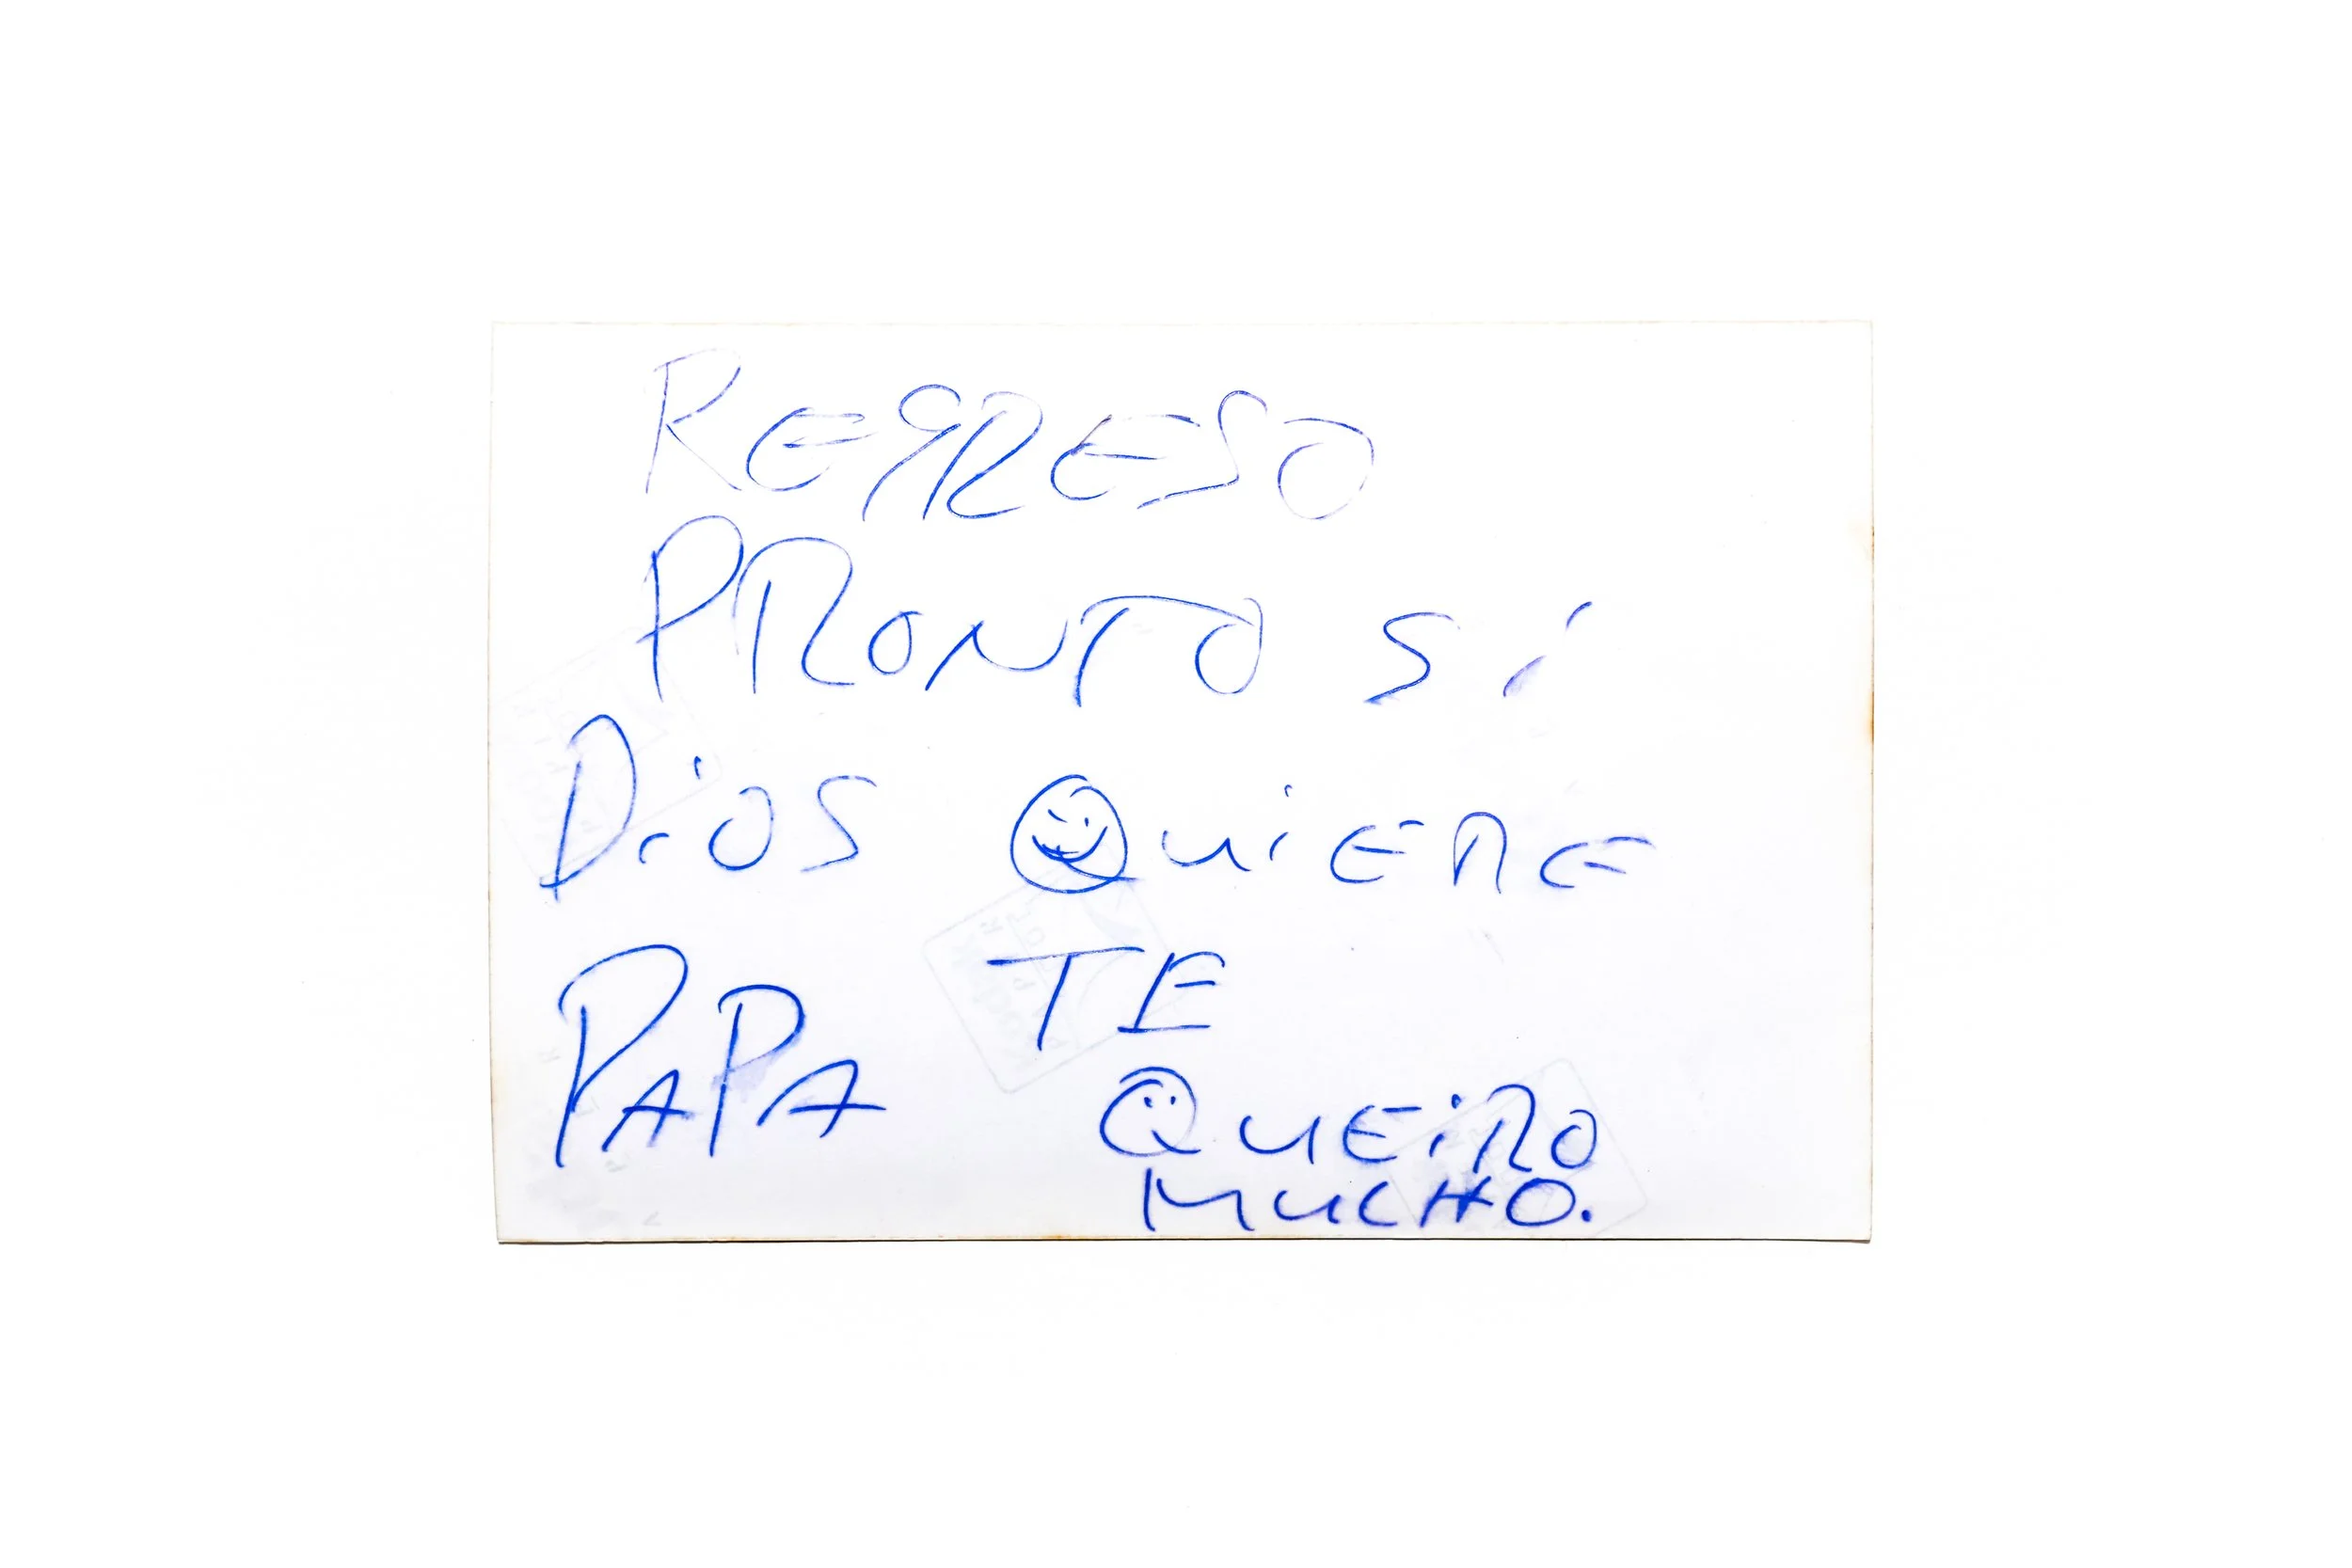 REGRESO
PRONTO Si
DiOS QUiERE
PAPA TE
QUEiRO
MUCHO.